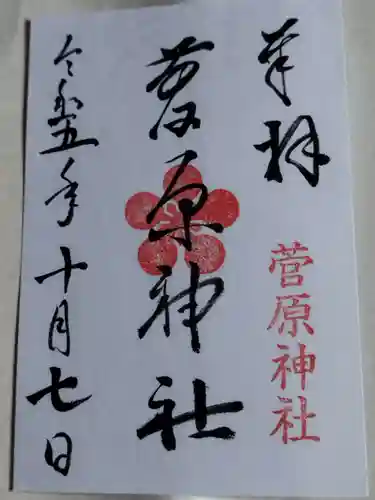 奉拝
菅原神社
菅原神社
令和五年十月七日